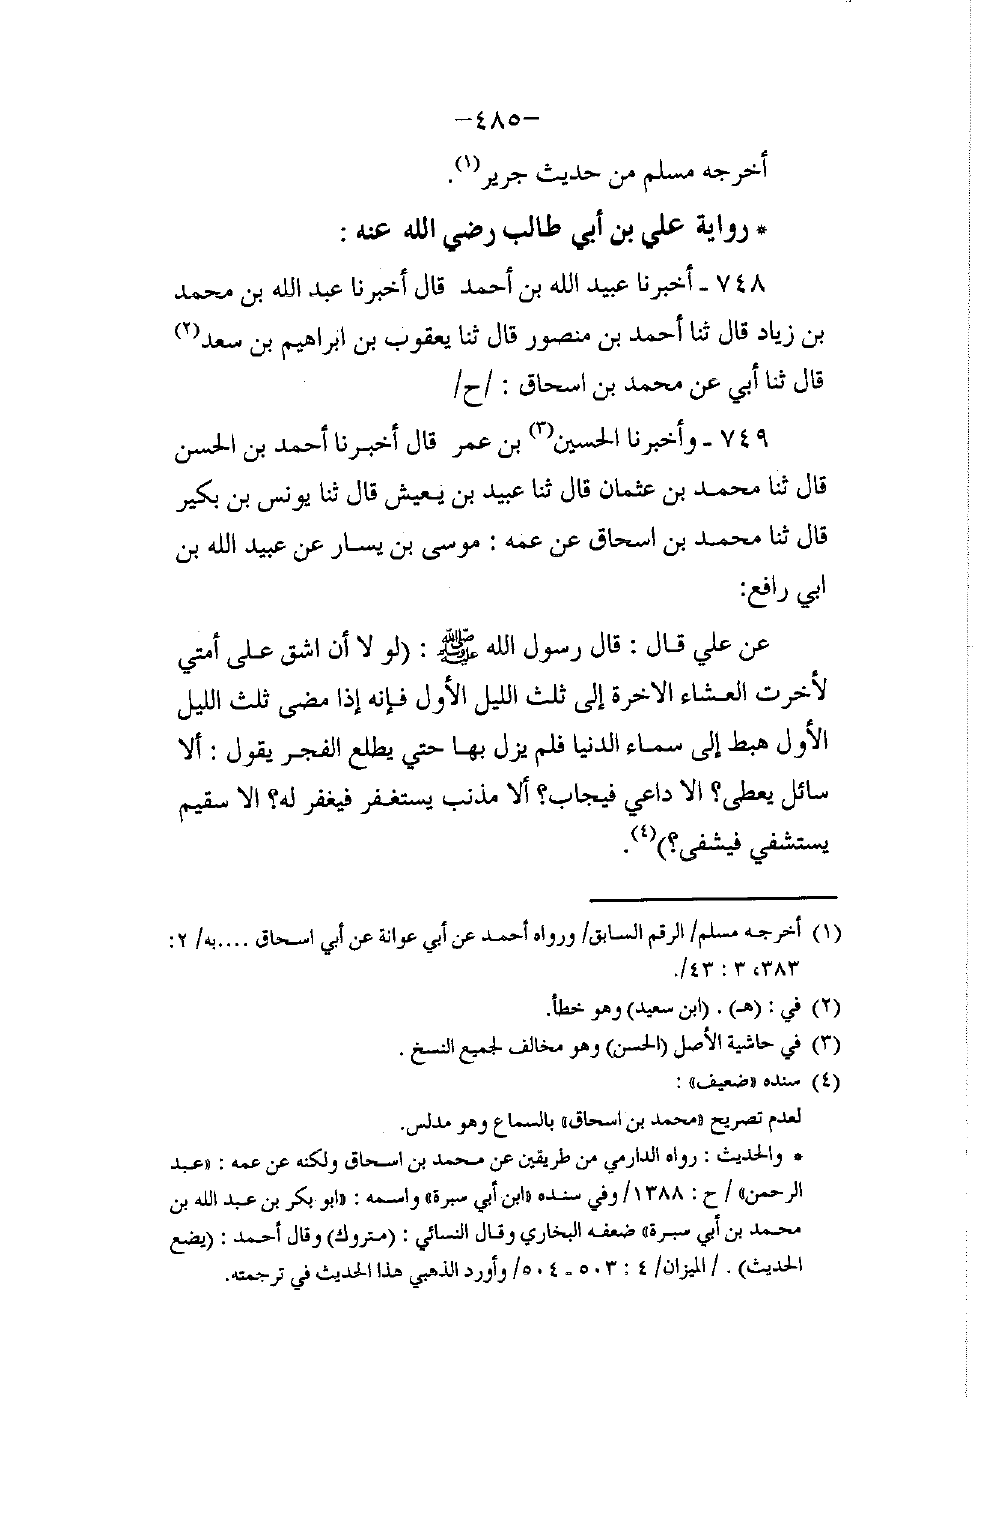 -٤٨٥-
أخرجه مسلم من حديث جرير(١).
* رواية علي بن أبي طالب رضي الله عنه :
٧٤٨ ـ أخبرنا عبيد الله بن أحمد قال أخبرنا عبد الله بن محمد
بن زياد قال ثنا أحمد بن منصور قال ثنا يعقوب بن ابراهيم بن سعد(٢)
قال ثنا أبي عن محمد بن اسحاق : /ح/
٧٤٩ ـ وأخبرنا الحسين(٣) بن عمر قال أخبرنا أحمد بن الحسن
قال ثنا محمد بن عثمان قال ثنا عبيد بن يعيش قال ثنا يونس بن بكير
قال ثنا محمد بن اسحاق عن عمه : موسى بن يسار عن عبيد الله بن
ابي رافع:
عن علي قال : قال رسول الله ﷺ : (لو لا أن اشق على أمتي
لأخرت العشاء الاخرة إلى ثلث الليل الأول فإنه إذا مضى ثلث الليل
الأول هبط إلى سماء الدنيا فلم يزل بها حتي يطلع الفجر يقول : ألا
سائل يعطى؟ الا داعي فيجاب؟ ألا مذنب يستغفر فيغفر له؟ الا سقيم
يستشفي فيشفى؟)(٤).
(١) أخرجه مسلم/ الرقم السابق/ ورواه أحمد عن أبي عوانة عن أبي اسحاق ....به/ ٢:
٣٨٣، ٣ : ٤٣/.
(٢) في : (هـ) . (ابن سعيد) وهو خطأ.
(٣) في حاشية الأصل (الحسن) وهو مخالف لجميع النسخ .
(٤) سنده «ضعيف» :
لعدم تصريح «محمد بن اسحاق» بالسماع وهو مدلس.
* والحديث : رواه الدارمي من طريقين عن محمد بن اسحاق ولكنه عن عمه : «عبد
الرحمن» / ح : ١٣٨٨/ وفي سنده «ابن أبي سبرة» واسمه : «ابو بكر بن عبد الله بن
محمد بن أبي سبرة» ضعفه البخاري وقال النسائي : (متروك) وقال أحمد : (يضع
الحديث) . / الميزان/ ٤ : ٥٠٣ ـ ٥٠٤/ وأورد الذهبي هذا الحديث في ترجمته.